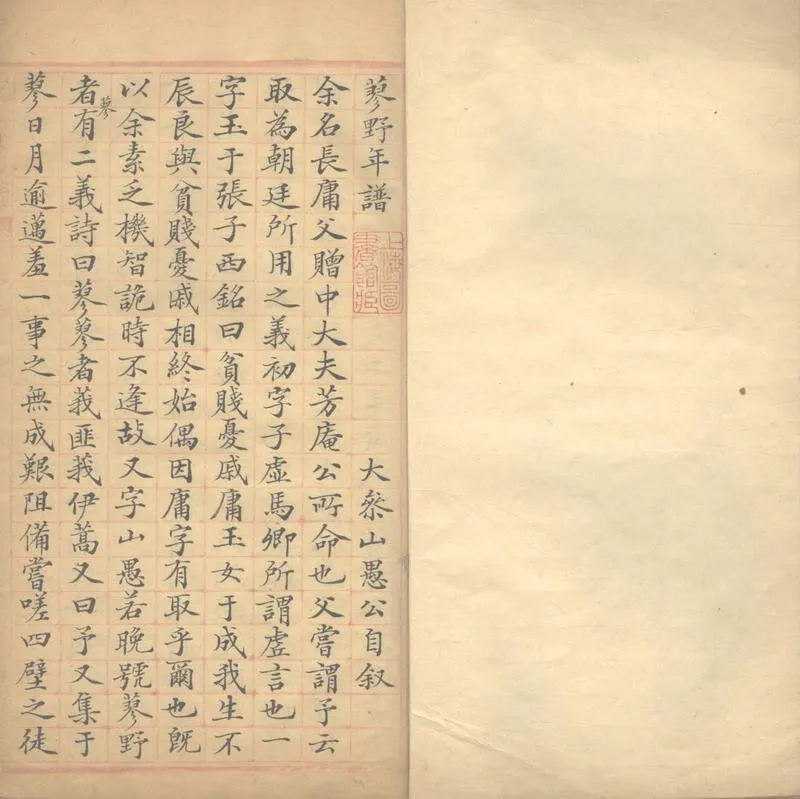 蓼野年譜 大叅山愚公自叙
上海圖書館藏
余名長庸父贈中大夫芳庵公所命也父嘗謂予云
取為朝廷所用之義初字子虛馬卿所謂虛言也一
字玉于張子西銘曰貧賤憂戚庸玉女于成我生不
辰良與貧賤憂戚相終始偶因庸字有取乎爾也既
以余素乏機智詭時不逢故又字山愚若晚號蓼野
者蓼有二義詩曰蓼蓼者莪匪莪伊蒿又曰予又集于
蓼日月逾邁羞一事之無成艱阻備嘗嗟四壁之徒